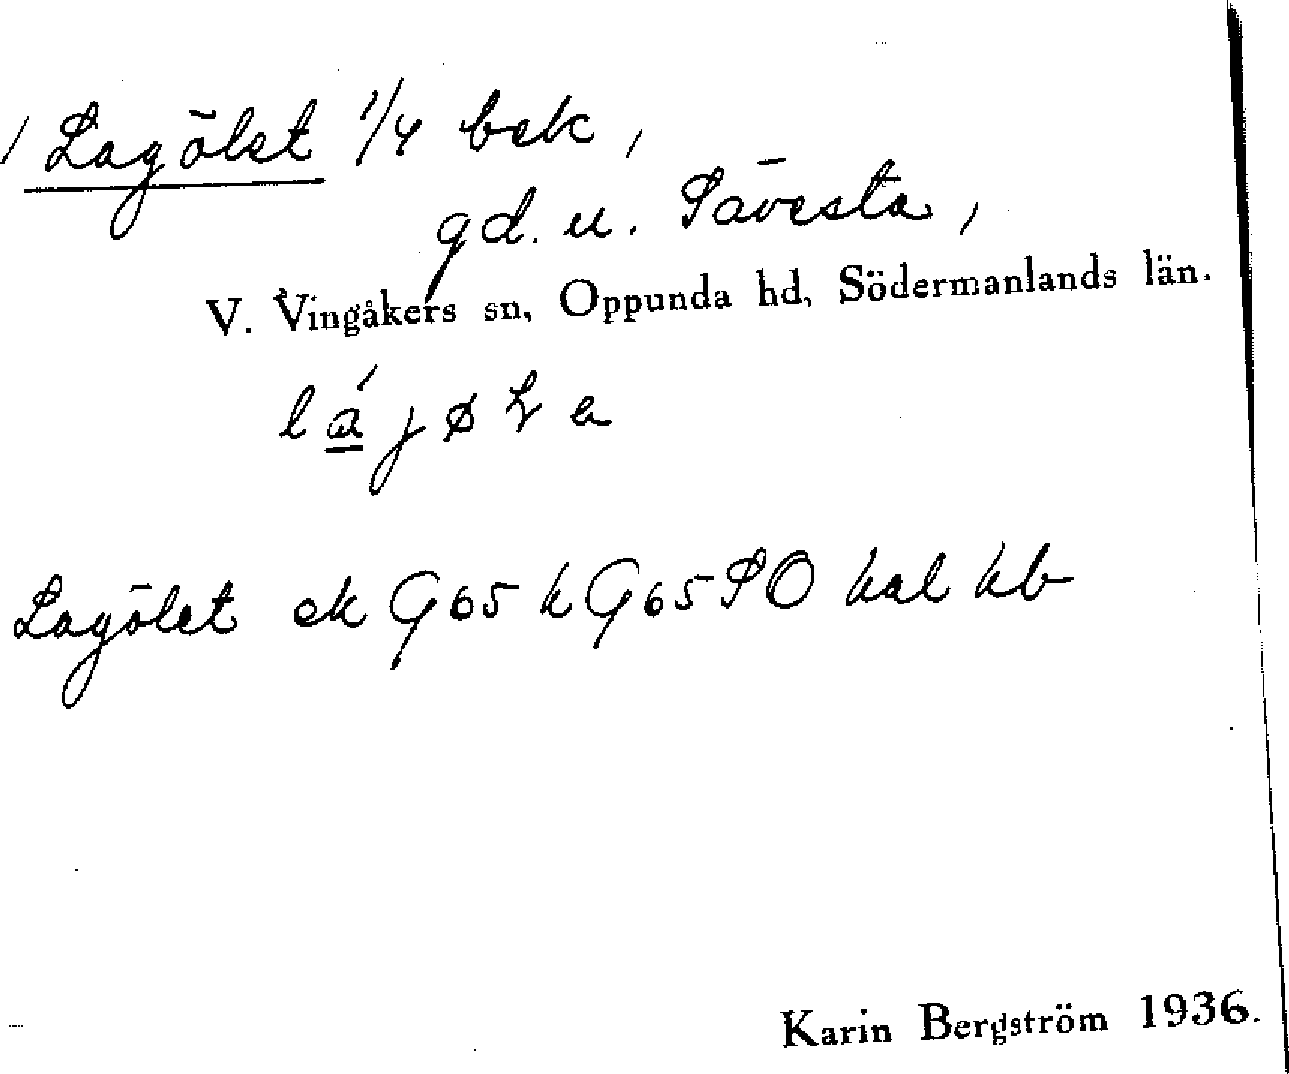 / Lagölet 1/4 bek,
gd. u. Sävesta,
V. Vingåkers sn, Oppunda hd, Södermanlands län.
Lagölet ek G65 k G65 SO kal kb
Karin Bergström 1936.